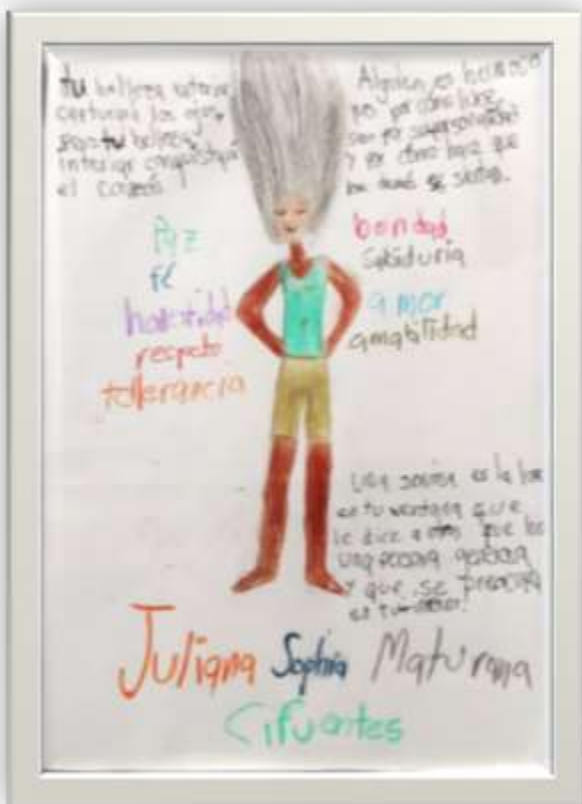 tu belleza exterior
cautivará los ojos,
pero tu belleza
interior conquistará
el corazón
Alguien es hermoso
no por cómo luce,
sino por su personalidad
y por cómo hace que
los demás se sientan.
Paz
fé
honestidad
respeto
tollerancia
bondad
Sabiduria
amor
amabilidad
Una sonrisa es la luz
en tu ventana que
le dice a que hay
una persona
y que se preocupa
en tu
Juliana Sophia Maturana
Cifuentes